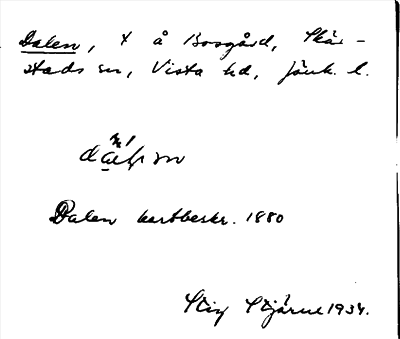 Dalen, t å Bosgård, Skär-
stads sn, Vista hd, Jönk. l.
Dalen kartbeskr. 1880
Stig Stjärne 1934.